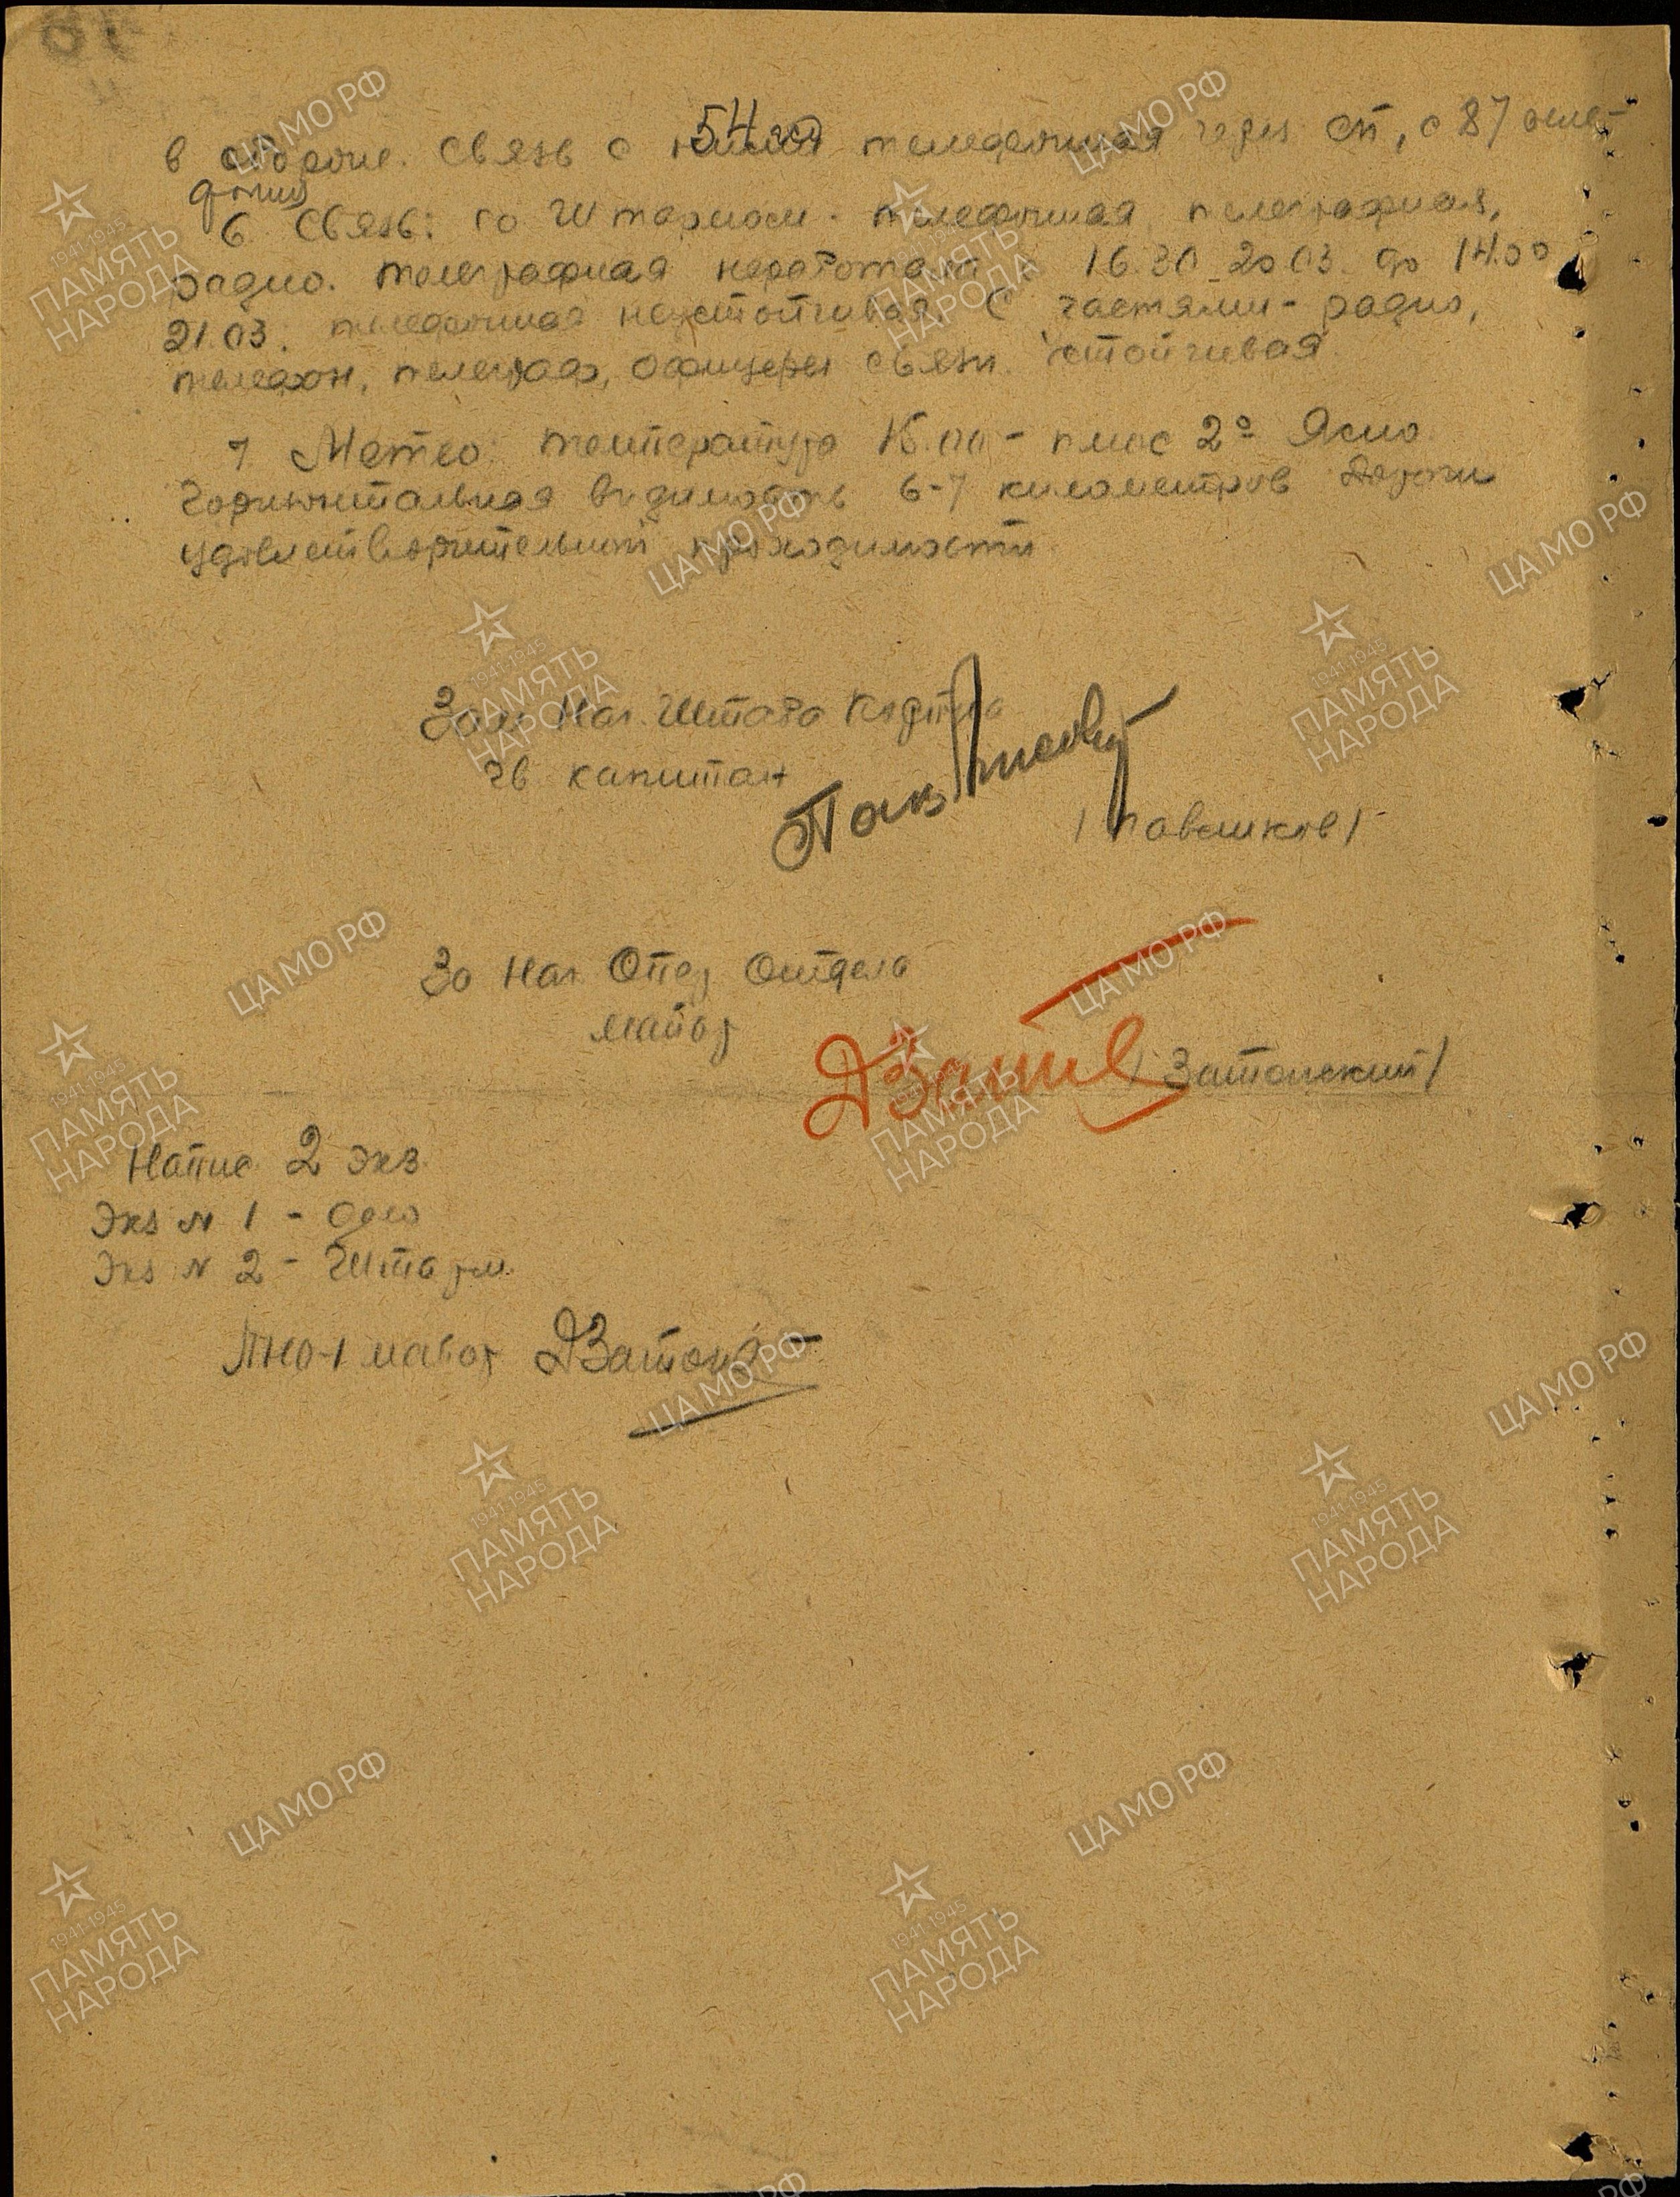 в обороне. Связь с 54 телефонная через сп, с 87 еже-
дневно
6. Связь: со Штармом - телефонная, телеграфная,
радио. Телеграфная неработала с 16.30 20.03. до 14.00
21.03. телефонная неустойчивая. С частями - радио,
телефон, телеграф, офицеры связи. Устойчивая.
7 Метео: температура 15.00 - плюс 2° Ясно.
Горизонтальная видимость 6-7 километров Дороги
удовлетворительной проходимости.
Зам Нач. Штаба Корпуса
гв. капитан
/Павликов/
За Нач. Опер Отдела
майор
/Затонский/
Напис. 2 экз.
Экз N 1 - дело
Экз N 2 - Штарм.
ПНО-1 майор ДЗатон